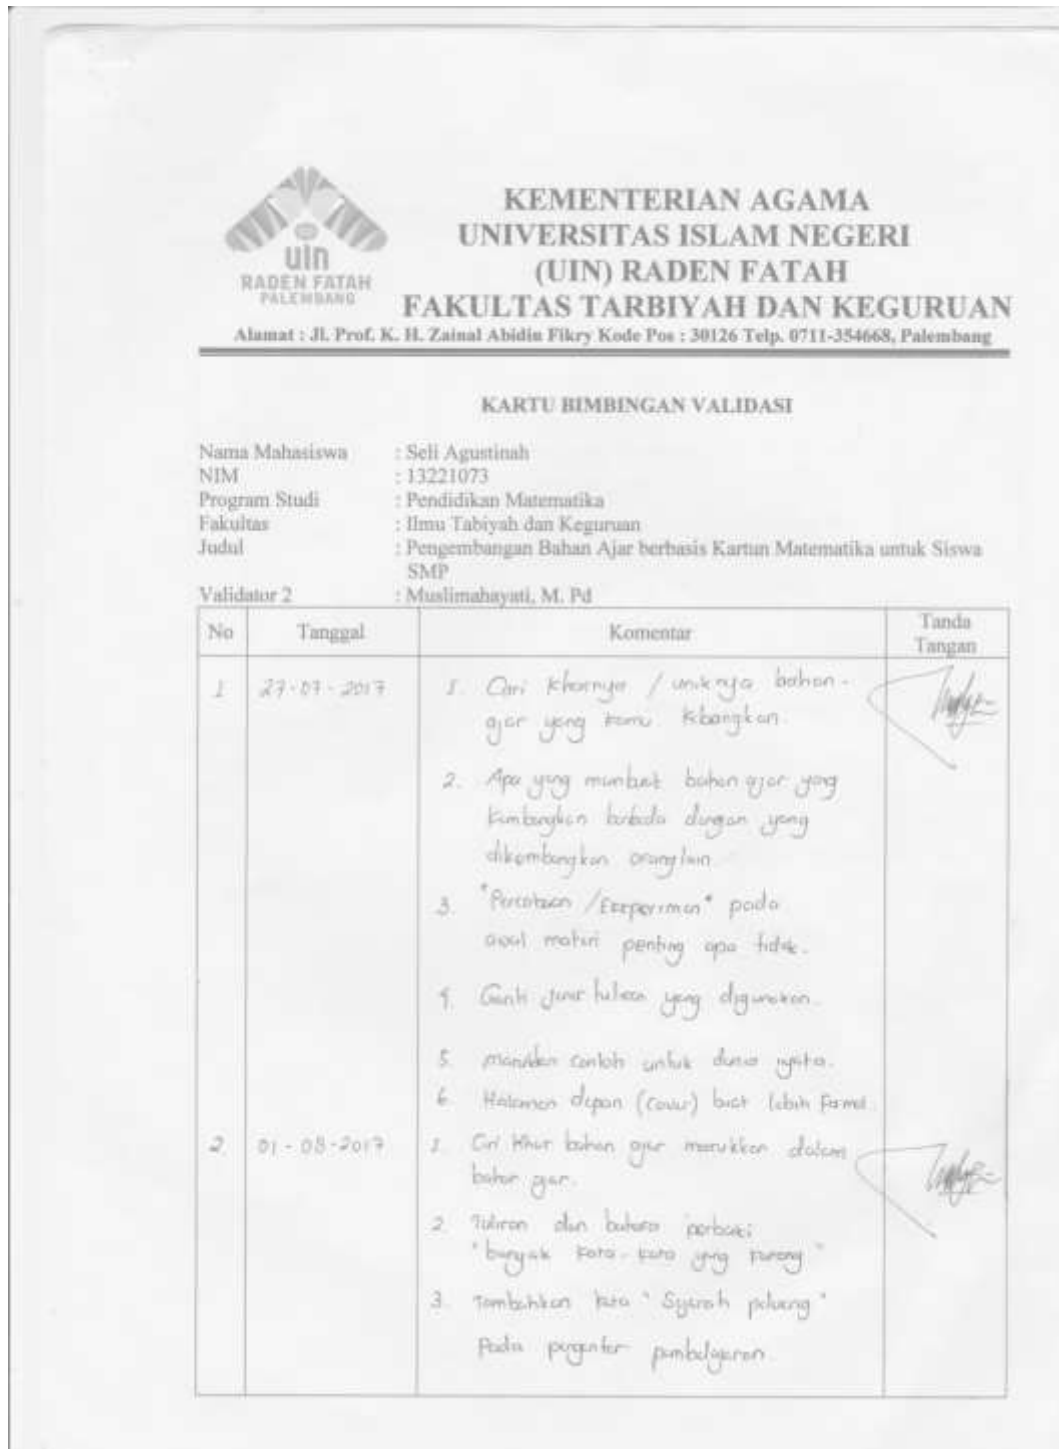 uin
RADEN FATAH
PALEMBANG
KEMENTERIAN AGAMA
UNIVERSITAS ISLAM NEGERI
(UIN) RADEN FATAH
FAKULTAS TARBIYAH DAN KEGURUAN
Alamat : Jl. Prof. K. H. Zainal Abidin Fikry Kode Pos : 30126 Telp. 0711-354668, Palembang
KARTU BIMBINGAN VALIDASI
Nama Mahasiswa : Seli Agustinah
NIM : 13221073
Program Studi : Pendidikan Matematika
Fakultas : Ilmu Tabiyah dan Keguruan
Judul : Pengembangan Bahan Ajar berbasis Kartun Matematika untuk Siswa
SMP
Validator 2 : Muslimahayati, M. Pd
No Tanggal Komentar Tanda
Tangan
1 27-07-2017 1. Cari khasnya / uniknya bahan-
ajar yang kamu kbangkan.
2. Apa yang membuat bahan ajar yang
kembangkan berbeda dengan yang
dikembangkan orang lain.
3. "Percobaan / Eksperimen" pada
awal materi penting apa tidak.
4. Ganti jenis tulisan yang digunakan.
5. contoh untuk dunia nyata.
6. Halaman depan (cover) buat lebih formal.
2. 01-08-2017 1. Ciri khas bahan ajar masukkan dalam
bahan ajar.
2. Tulisan dan bahasa perbaiki
"banyak kata-kata yang kurang"
3. Tambahkan kata "Sejarah peluang"
Pada pengantar pembelajaran.